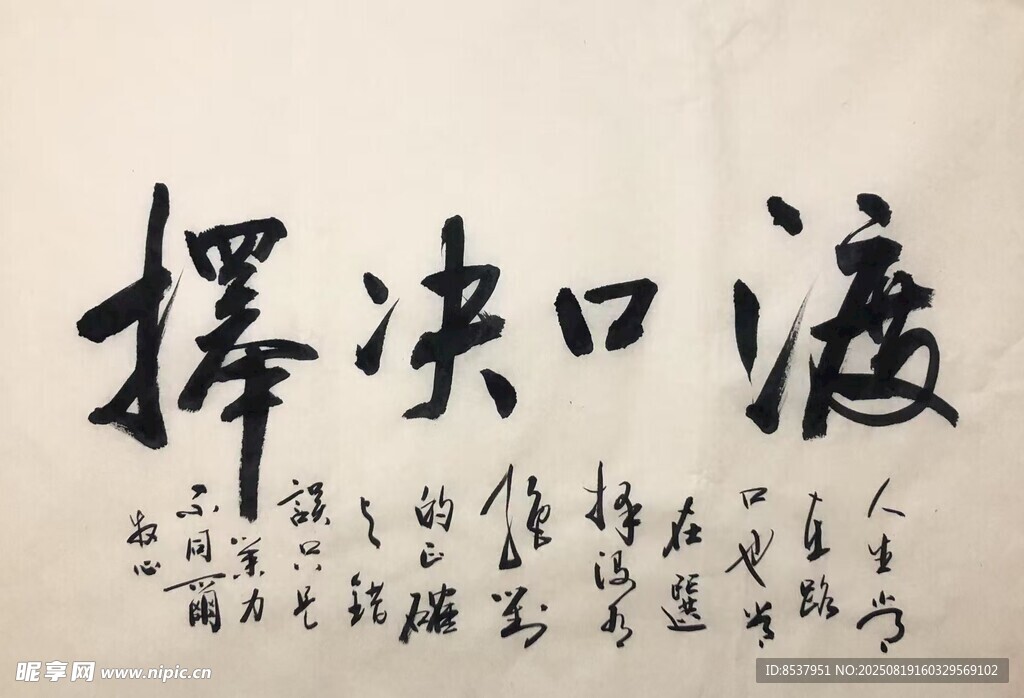 渡口决择
人生常
在路
口也常
在選
择没有
絕對
的正確
与錯
誤只是
業力
不同爾
牧心
昵享网 www.nipic.cn
ID:8537951 NO:20250819160329569102